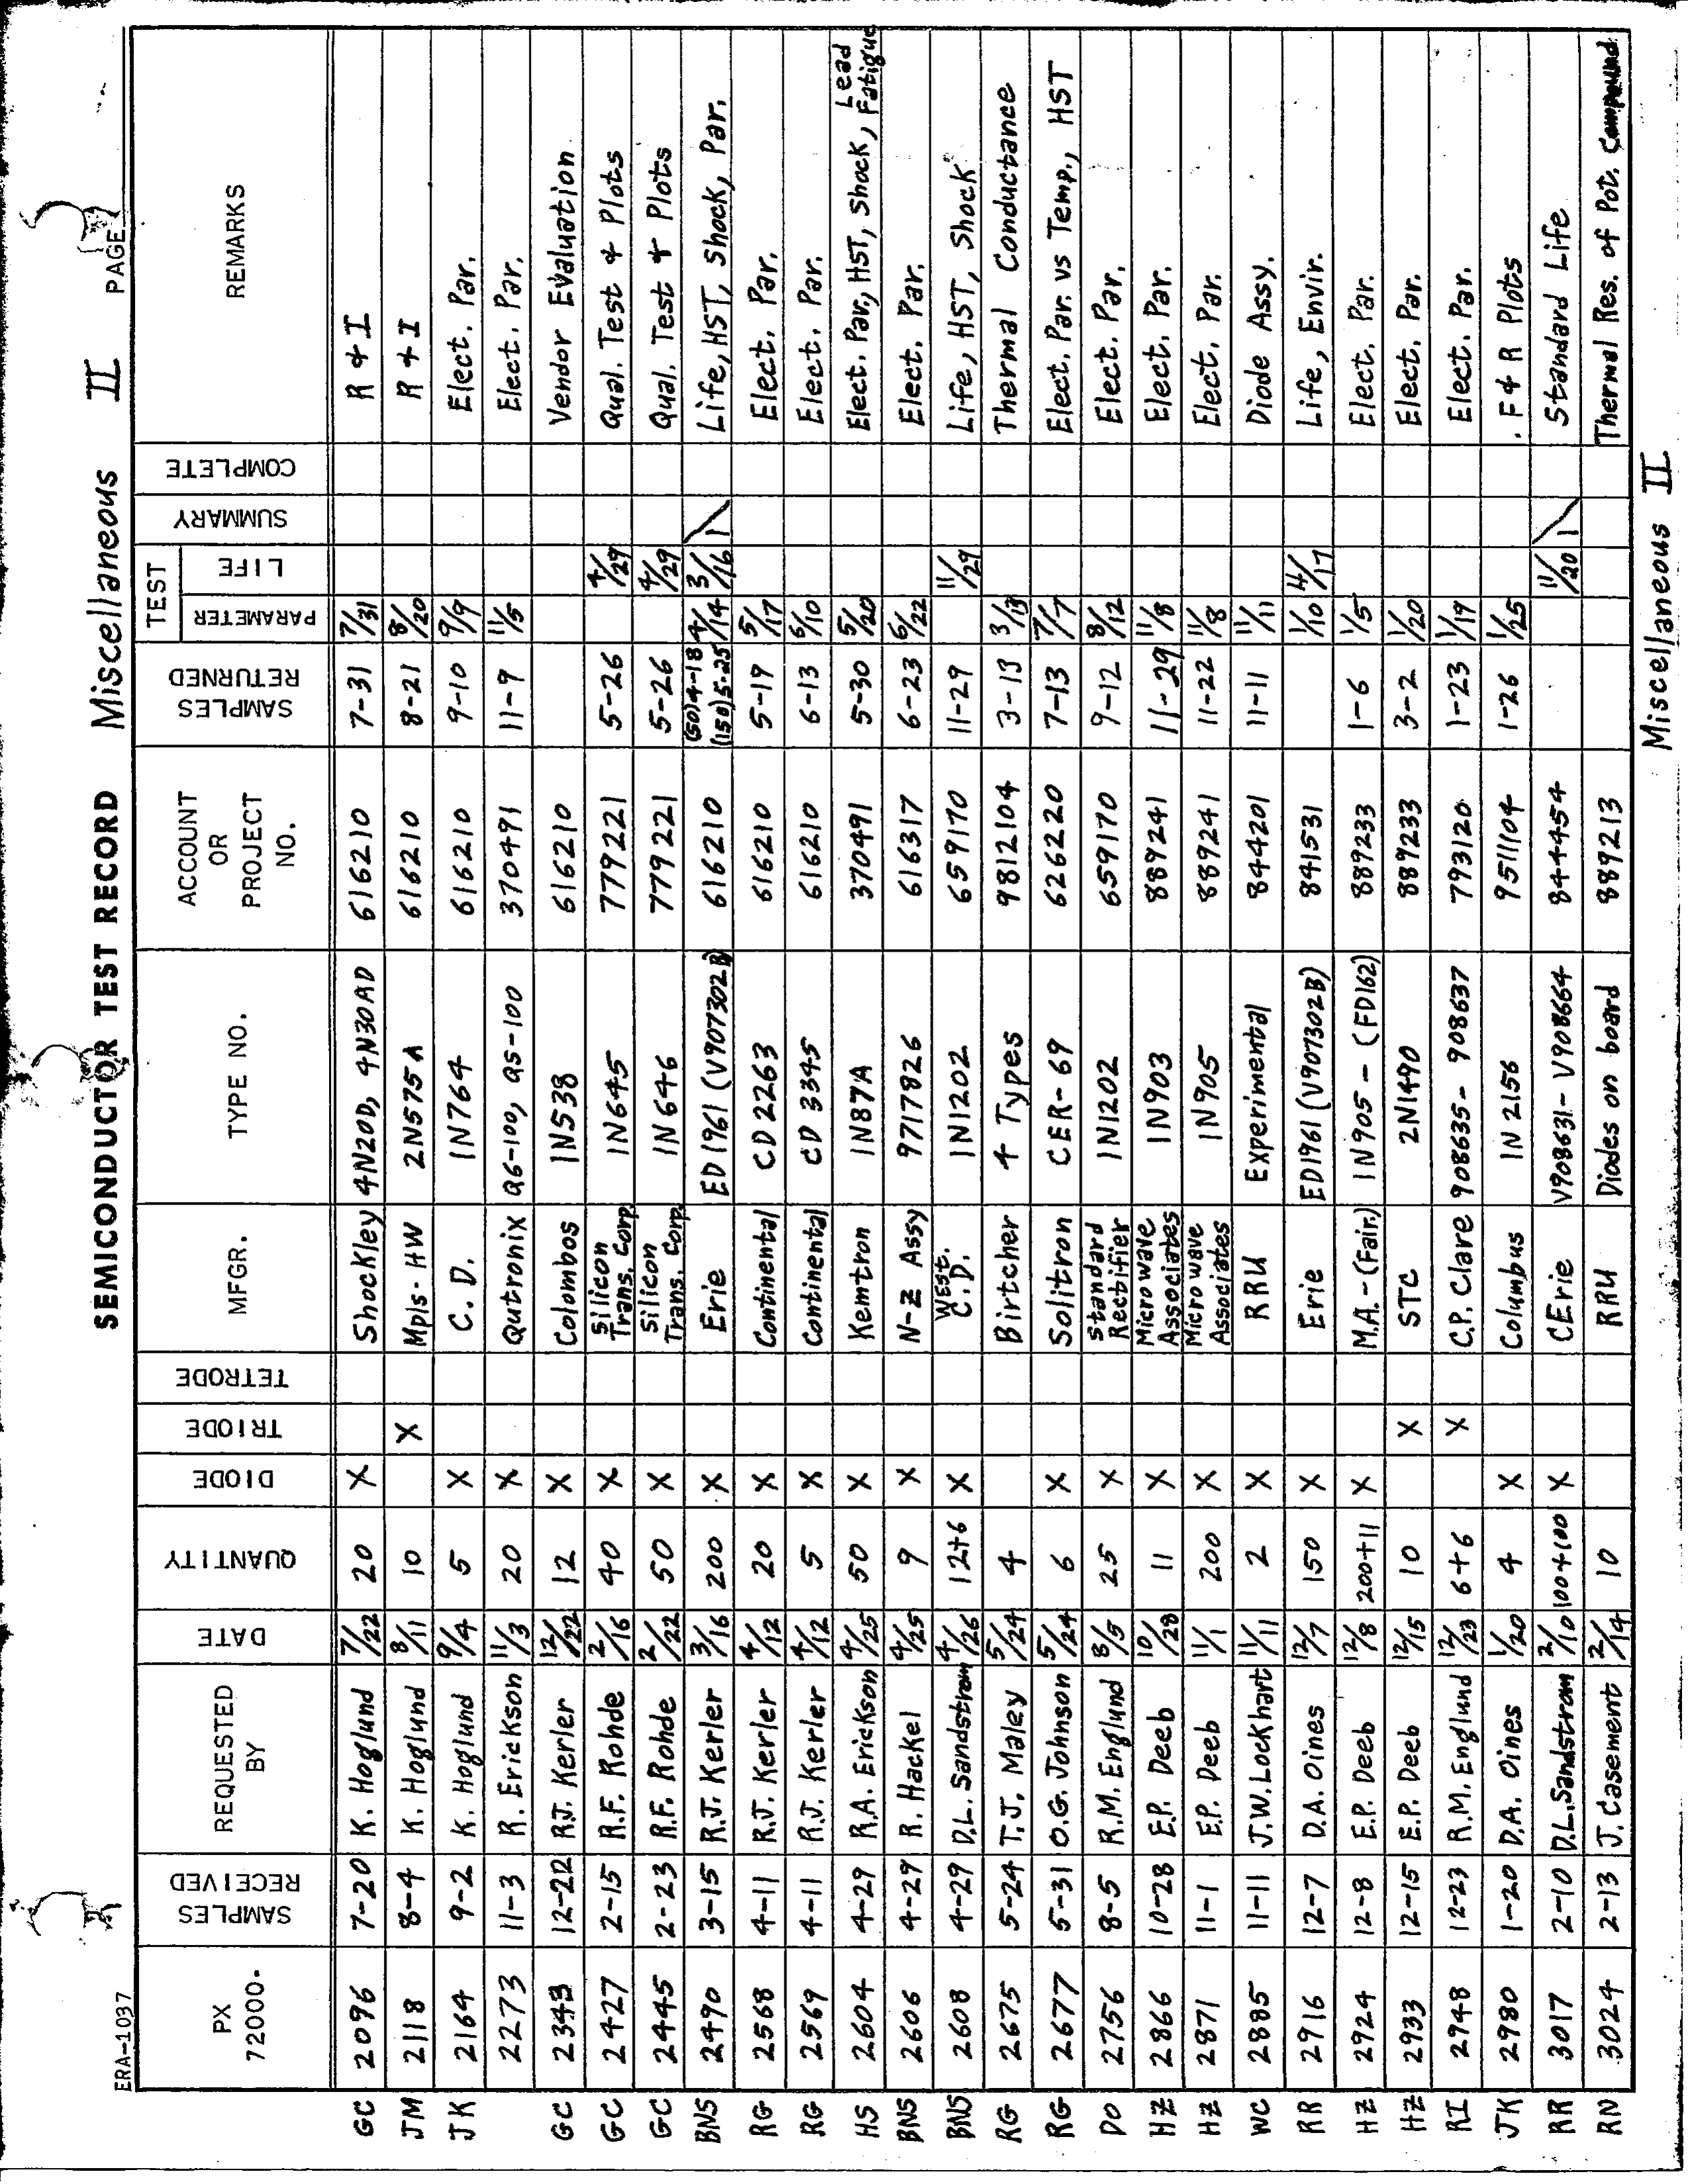 SEMICONDUCTOR TEST RECORD Miscellaneous II PAGE
ERA-1037
PX 72000. SAMPLES RECEIVED REQUESTED BY DATE QUANTITY DIODE TRIODE TETRODE MFGR. TYPE NO. ACCOUNT OR PROJECT NO. SAMPLES RETURNED TEST PARAMETER LIFE SUMMARY COMPLETE REMARKS
GC 2096 7-20 K. Hoglund 7/22 20 X Shockley 4N20D, 4N30AD 616210 7-31 7/31 R & I
JM 2118 8-4 K. Hoglund 8/11 10 X Mpls-HW 2N575A 616210 8-21 8/20 R & I
JK 2164 9-2 K. Hoglund 9/4 5 X C.D. 1N764 616210 9-10 9/9 Elect. Par.
2273 11-3 R. Erickson 11/3 20 X Qutronix Q6-100, Q5-100 370491 11-9 11/5 Elect. Par.
GC 2343 12-22 R.J. Kerler 12/22 12 X Colombos 1N538 616210 Vendor Evaluation
GC 2427 2-15 R.F. Rohde 2/16 40 X Silicon Trans. Corp. 1N645 779221 5-26 4/29 Qual. Test & Plots
GC 2445 2-23 R.F. Rohde 2/22 50 X Silicon Trans. Corp. 1N646 779221 5-26 4/29 Qual. Test & Plots
BNS 2490 3-15 R.J. Kerler 3/16 200 X Erie ED1961 (V907302B) 616210 (50)4-18 (150)5-25 4/14 3/16 Life, HST, Shock, Par.
RG 2568 4-11 R.J. Kerler 4/12 20 X Continental CD2263 616210 5-19 5/17 Elect. Par.
RG 2569 4-11 R.J. Kerler 4/12 5 X Continental CD 3345 616210 6-13 6/10 Elect. Par.
HS 2604 4-29 R.A. Erickson 4/25 50 X Kemtron 1N87A 370491 5-30 5/20 Elect. Par., HST, Shock, Lead Fatigue
BNS 2606 4-29 R. Hackel 4/25 9 X N-Z Assy 9717826 616317 6-23 6/22 Elect. Par.
BNS 2608 4-29 D.L. Sandstrom 4/26 12+6 X West. C.D. 1N1202 659170 11-29 11/29 Life, HST, Shock
RG 2675 5-24 T.J. Maley 5/24 4 Birtcher 4 Types 9812104 3-13 3/13 Thermal Conductance
RG 2677 5-31 O.G. Johnson 5/24 6 X Solitron CER-69 626220 7-13 7/7 Elect. Par. vs Temp., HST
DO 2756 8-5 R.M. Englund 8/5 25 X Standard Rectifier 1N1202 659170 9-12 8/12 Elect. Par.
HZ 2866 10-28 E.P. Deeb 10/28 11 X Microwave Associates 1N903 889241 11-29 11/8 Elect. Par.
HZ 2871 11-1 E.P. Deeb 11/1 200 X Microwave Associates 1N905 889241 11-22 11/8 Elect. Par.
WC 2885 11-11 J.W. Lockhart 11/11 2 X RRU Experimental 844201 11-11 11/11 Diode Assy.
RR 2916 12-7 D.A. Oines 12/7 150 X Erie ED1961 (V907302B) 841531 1/10 11/17 Life, Envir.
HZ 2924 12-8 E.P. Deeb 12/8 200+11 X M.A.-(Fair.) 1N905 - (FD162) 889233 1-6 1/5 Elect. Par.
HZ 2933 12-15 E.P. Deeb 12/15 10 X STC 2N1490 889233 3-2 1/20 Elect. Par.
RI 2948 12-23 R.M. Englund 12/23 6+6 X C.P. Clare 908635-908637 793120 1-23 1/19 Elect. Par.
JK 2980 1-20 D.A. Oines 1/20 4 X Columbus 1N2156 9511104 1-26 1/25 F & R Plots
RR 3017 2-10 D.L. Sandstrom 2/10 100+100 X CErie V908631-V908664 844454 11/20 Standard Life
RN 3024 2-13 J. Casement 2/14 10 RRU Diodes on board 889213 Thermal Res. of Pot. Compound
Miscellaneous II